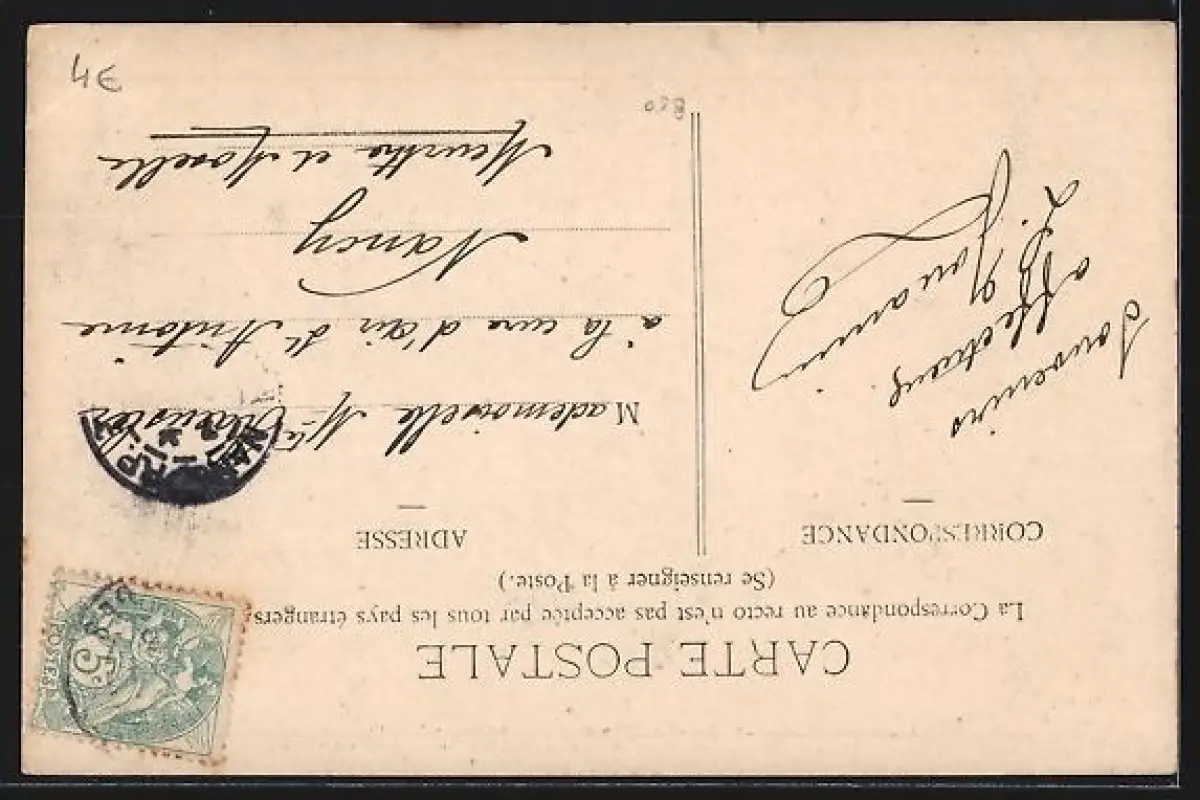 CARTE POSTALE
La Correspondance au recto n'est pas acceptée par tous les pays étrangers
(Se renseigner à la Poste.)
CORRESPONDANCE
Souvenirs
affectueux.
ADRESSE
Mademoiselle
à la cure d'air St Antoine
Nancy
Meurthe et Moselle
5
POSTES
NANCY
4€